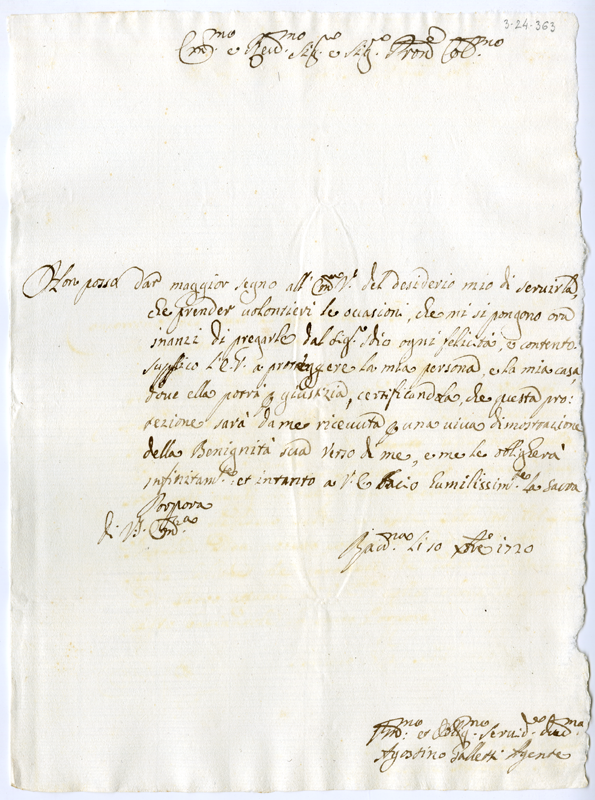 3-24-363
Em.mo e Rev.mo Sig.re e Sig.re Pron.e Col.mo
Non posso dar maggior segno all' Em.nze V.e del desiderio mio di servirla,
che prender volontieri le ocasioni, che mi si pongono ora
inanzi di pregarle dal Sig.r Idio ogni felicità, e contento.
supplico l'E.V. a proteggere la mia persona, e la mia casa,
dove ella potrà p giustizia, certificandola, che questa pro:
tezione sarà da me ricevuta p una viva dimostrazione
della Benignità sua verso di me, e me le obligherà
infinitam.te: et intanto a V.E. bacio humilissim.te la Sacra
Porpora
di V.ra Em.za
li 10 Xbre 1720
Hum.mo et Oblig.mo Servid.re
Agostino Galletti Agente